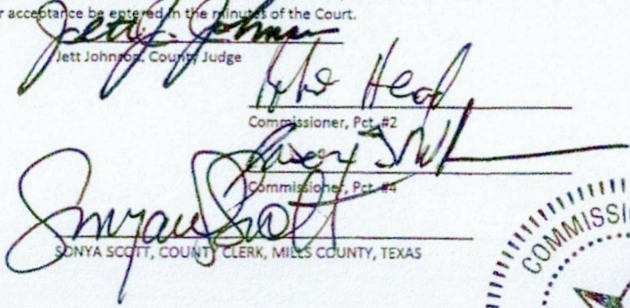 r acceptance be entered in the minutes of the Court.
Jett Johnson
Jett Johnson, County Judge
Head
Commissioner, Pct. #2
Commissioner, Pct. #4
Sonya Scott
SONYA SCOTT, COUNTY CLERK, MILLS COUNTY, TEXAS
COMMISSI